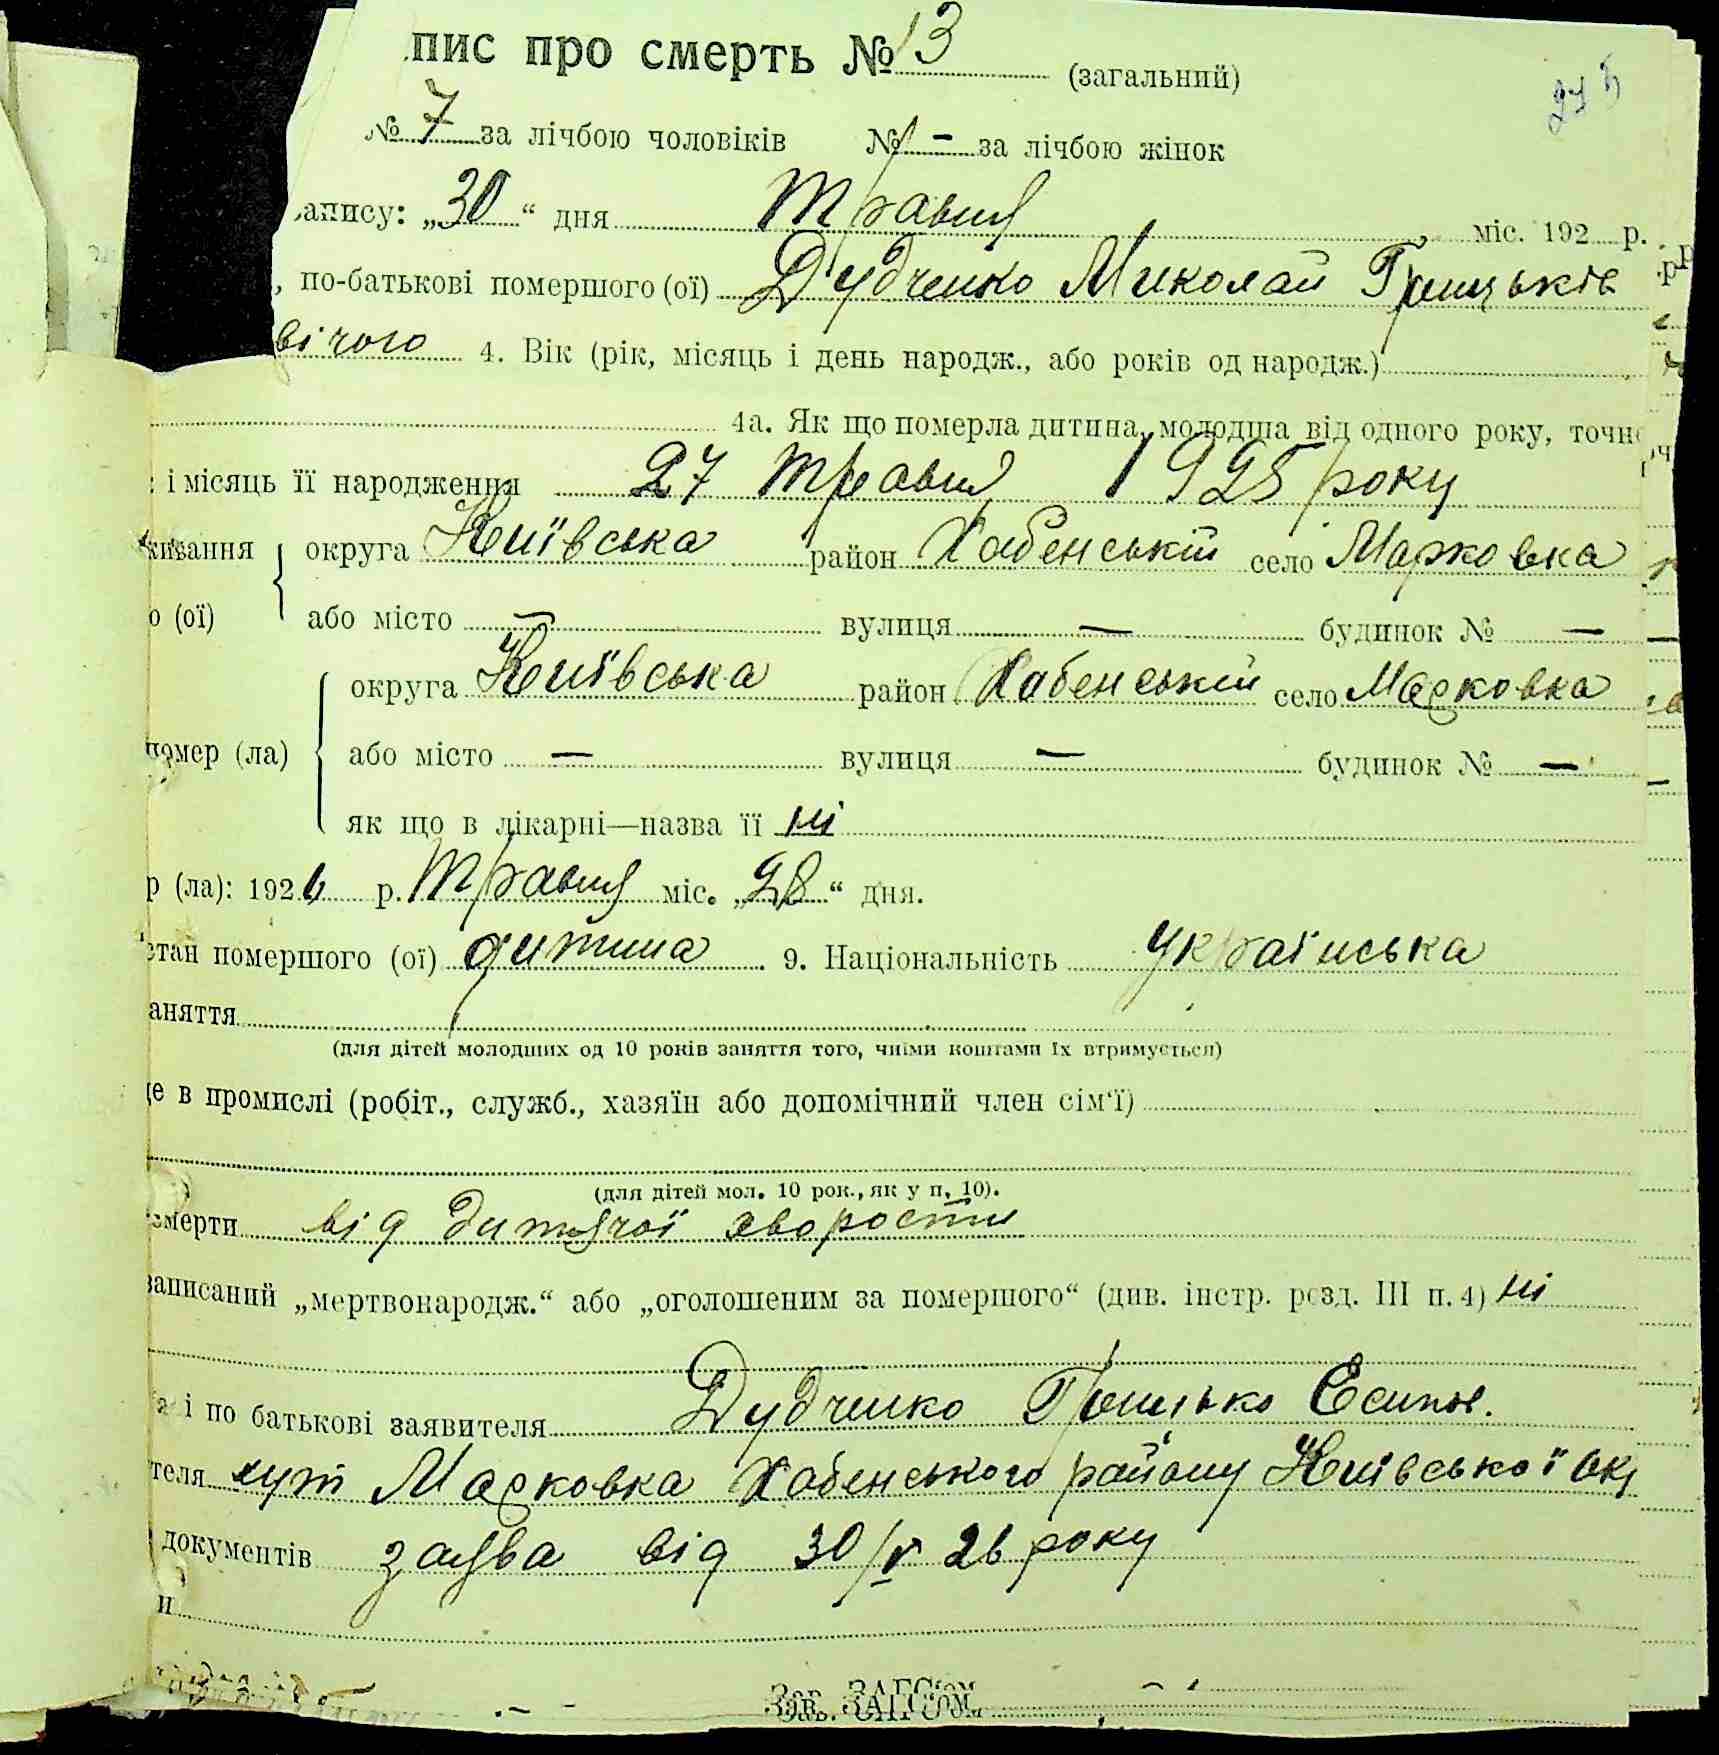 пис про смерть № 13 (загальний)
№ 7 за лічбою чоловіків № — за лічбою жінок
апису: „30“ дня Травня міс. 192 р.
, по-батькові помершого (ої) Дудченко Миколай Грицьків
вічого 4. Вік (рік, місяць і день народж., або років од народж.)
4а. Як що померла дитина, молодша від одного року, точн
і місяць її народження 27 Травня 1925 року
живання округа Київська район Хабенській село Марковка
о (ої) або місто — вулиця — будинок № —
округа Київська район Хабенській село Марковка
помер (ла) або місто — вулиця — будинок № —
як що в лікарні—назва її ні
р (ла): 1926 р. Травня міс. „28“ дня.
стан помершого (ої) дитина 9. Національність українська
аняття
(для дітей молодших од 10 років заняття того, чиїми коштами їх втримується)
це в промислі (робіт., служб., хазяїн або допомічний член сім‘ї)
(для дітей мол. 10 рок., як у п. 10).
смерти від дитячої хворости
записаний „мертвонародж.“ або „оголошеним за помершого“ (див. інстр. розд. III п. 4) ні
і по батькові заявителя Дудченко Грицько Есипов.
теля хут Марковка Хабенського району Київської окр
документів заява від 30/V 26 року
и
Зав. ЗАГС‘ом